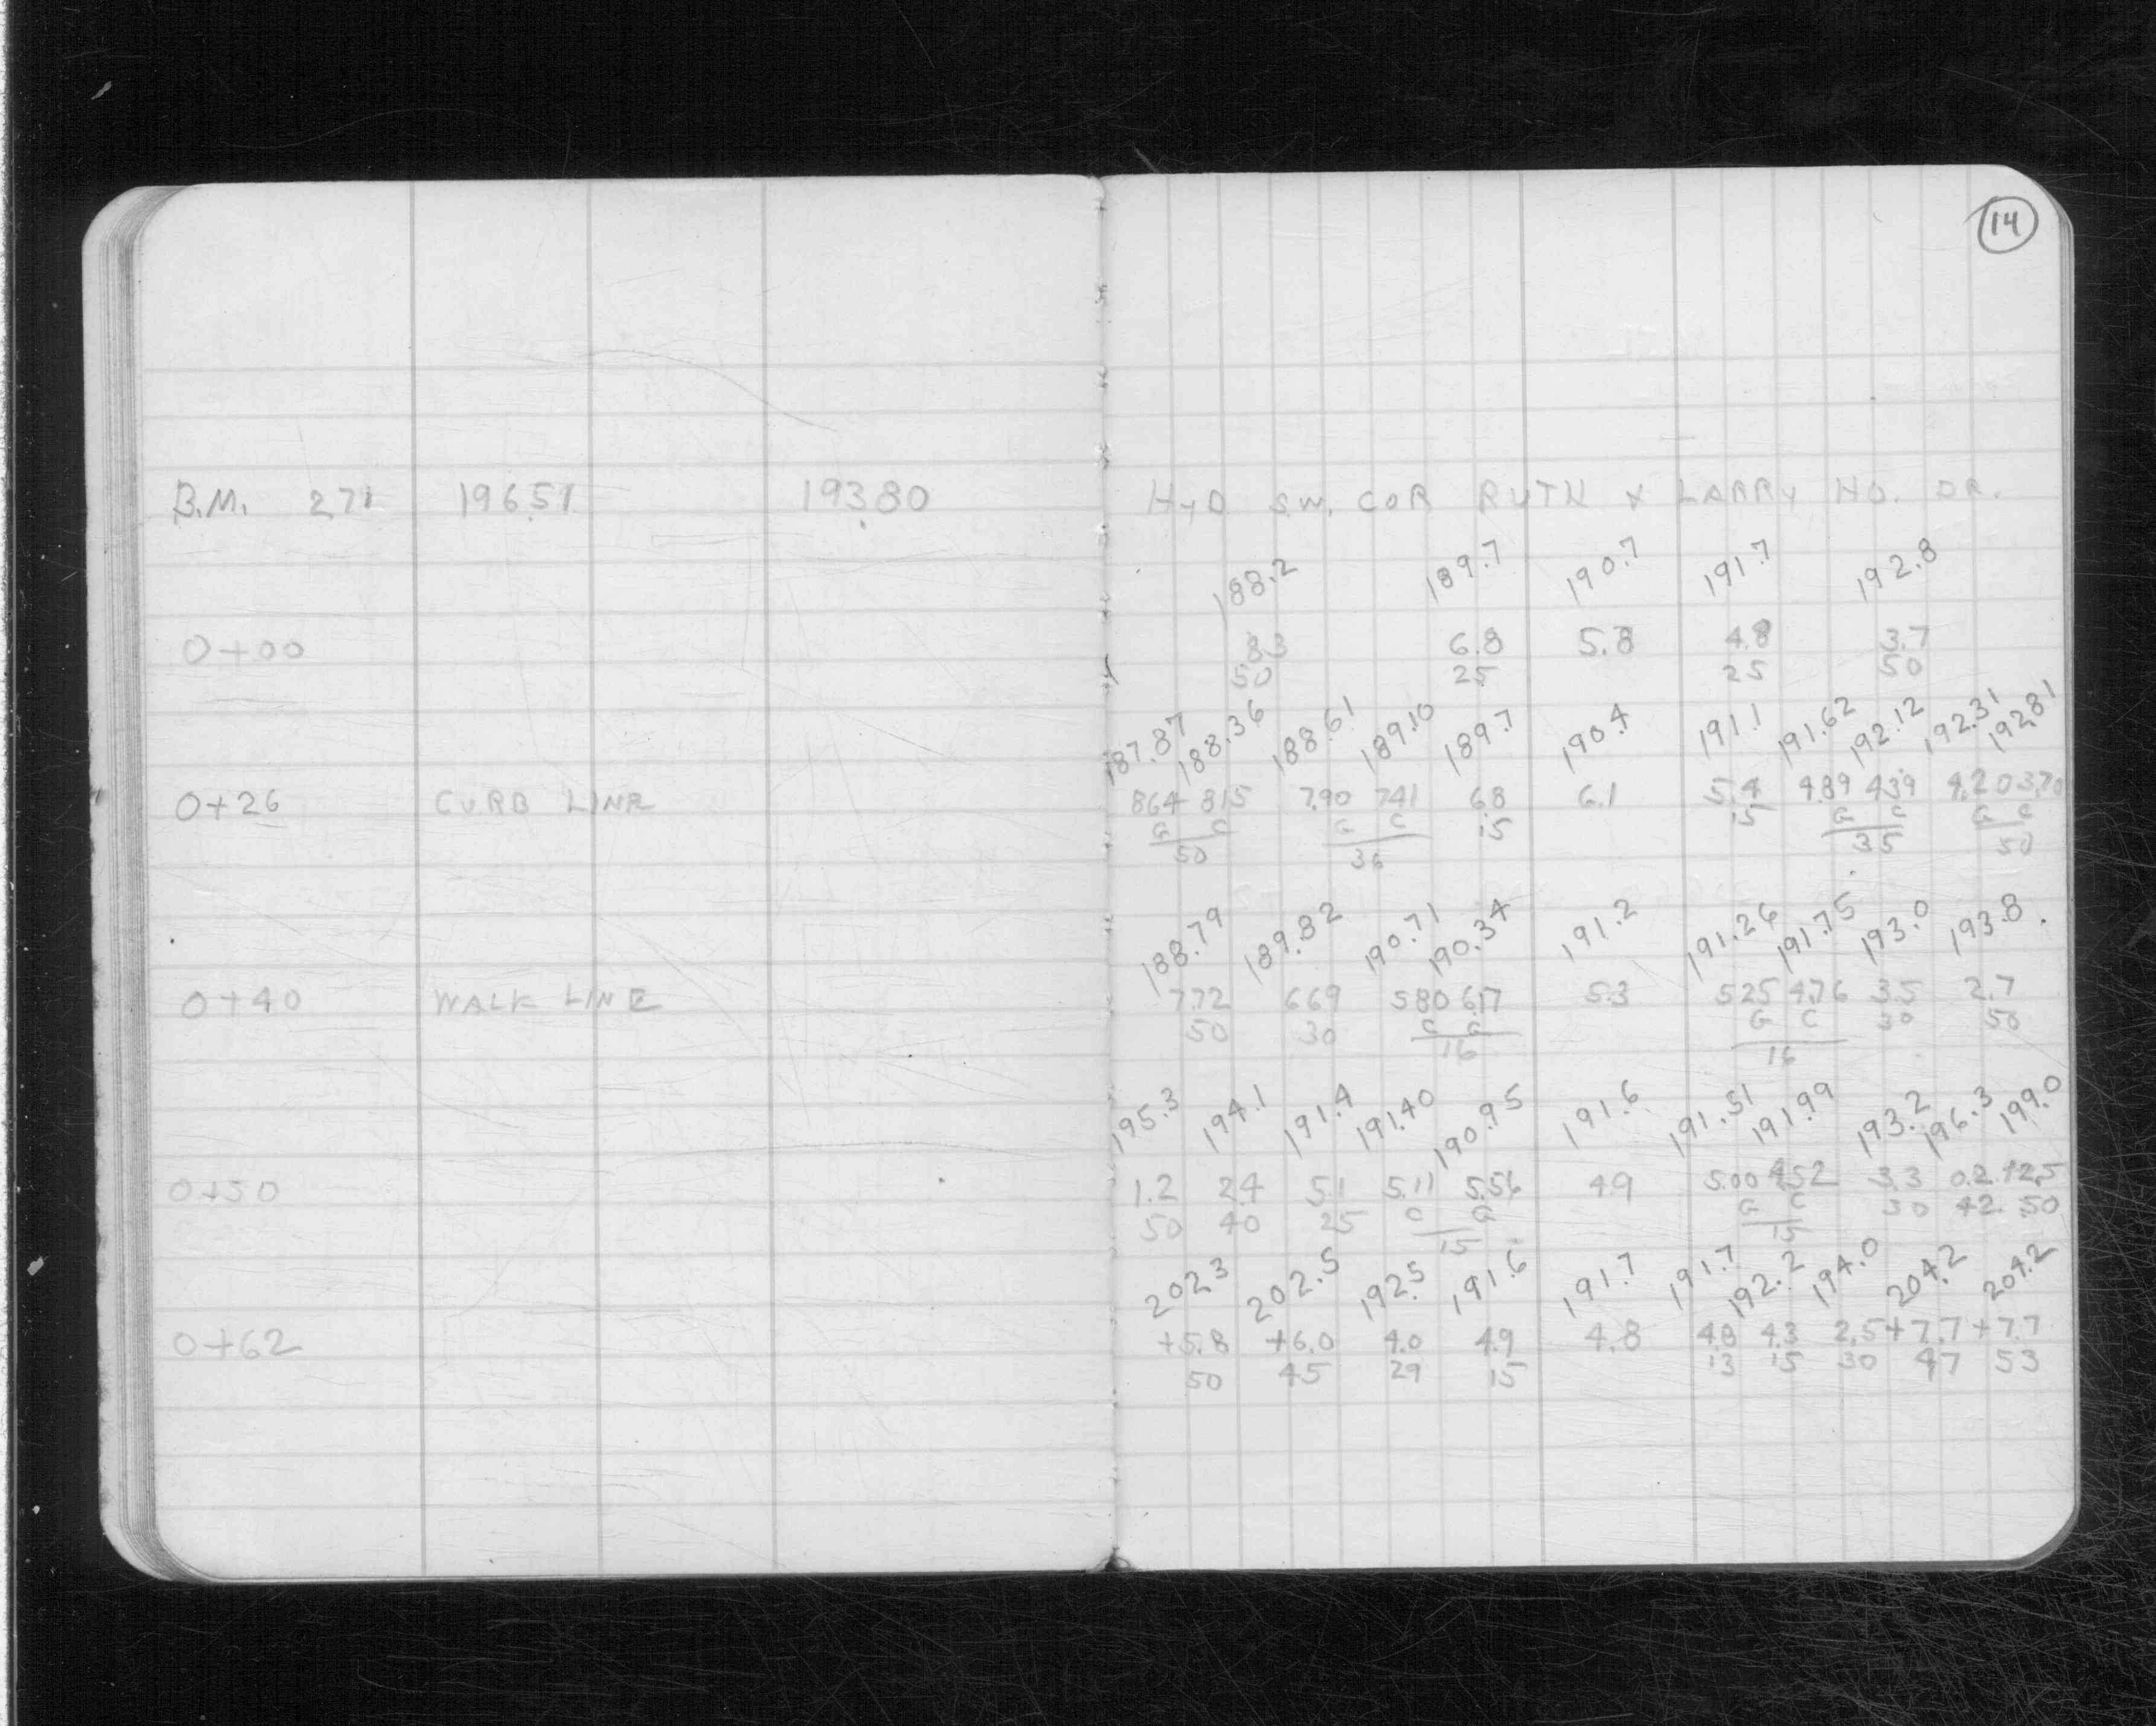 14
B.M. 2.71 196.51 193.80 HYD S.W. COR RUTH & LARRY HO. DR.
188.2 189.7 190.7 191.7 192.8
0+00 8.3 6.8 5.8 4.8 3.7
50 25 25 50
187.87 188.36 188.61 189.10 189.7 190.4 191.1 191.62 192.12 192.31 192.81
0+26 CURB LINE 864 815 7.90 741 6.8 6.1 5.4 4.89 4.39 4.20 3.70
G C G C 15 15 G C G C
50 36 35 50
188.79 189.82 190.71 190.34 191.2 191.26 191.75 193.0 193.8
0+40 WALK LINE 7.72 669 580 617 5.3 525 4.76 3.5 2.7
50 30 C G G C 30 50
16 16
195.3 194.1 191.4 191.40 190.95 191.6 191.51 191.99 193.2 196.3 199.0
0+50 1.2 2.4 5.1 5.11 5.56 4.9 5.00 4.52 3.3 0.2 +2.5
50 40 25 C G G C 30 42 50
15 15
202.3 202.5 192.5 191.6 191.7 191.7 192.2 194.0 204.2 204.2
0+62 +5.8 +6.0 4.0 4.9 4.8 4.8 4.3 2.5 +7.7 +7.7
50 45 29 15 13 15 30 47 53